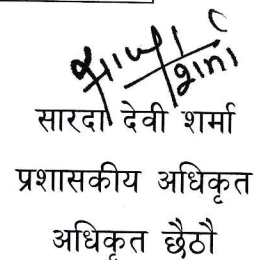 सारदा देवी शर्मा
प्रशासकीय अधिकृत
अधिकृत छैठौ